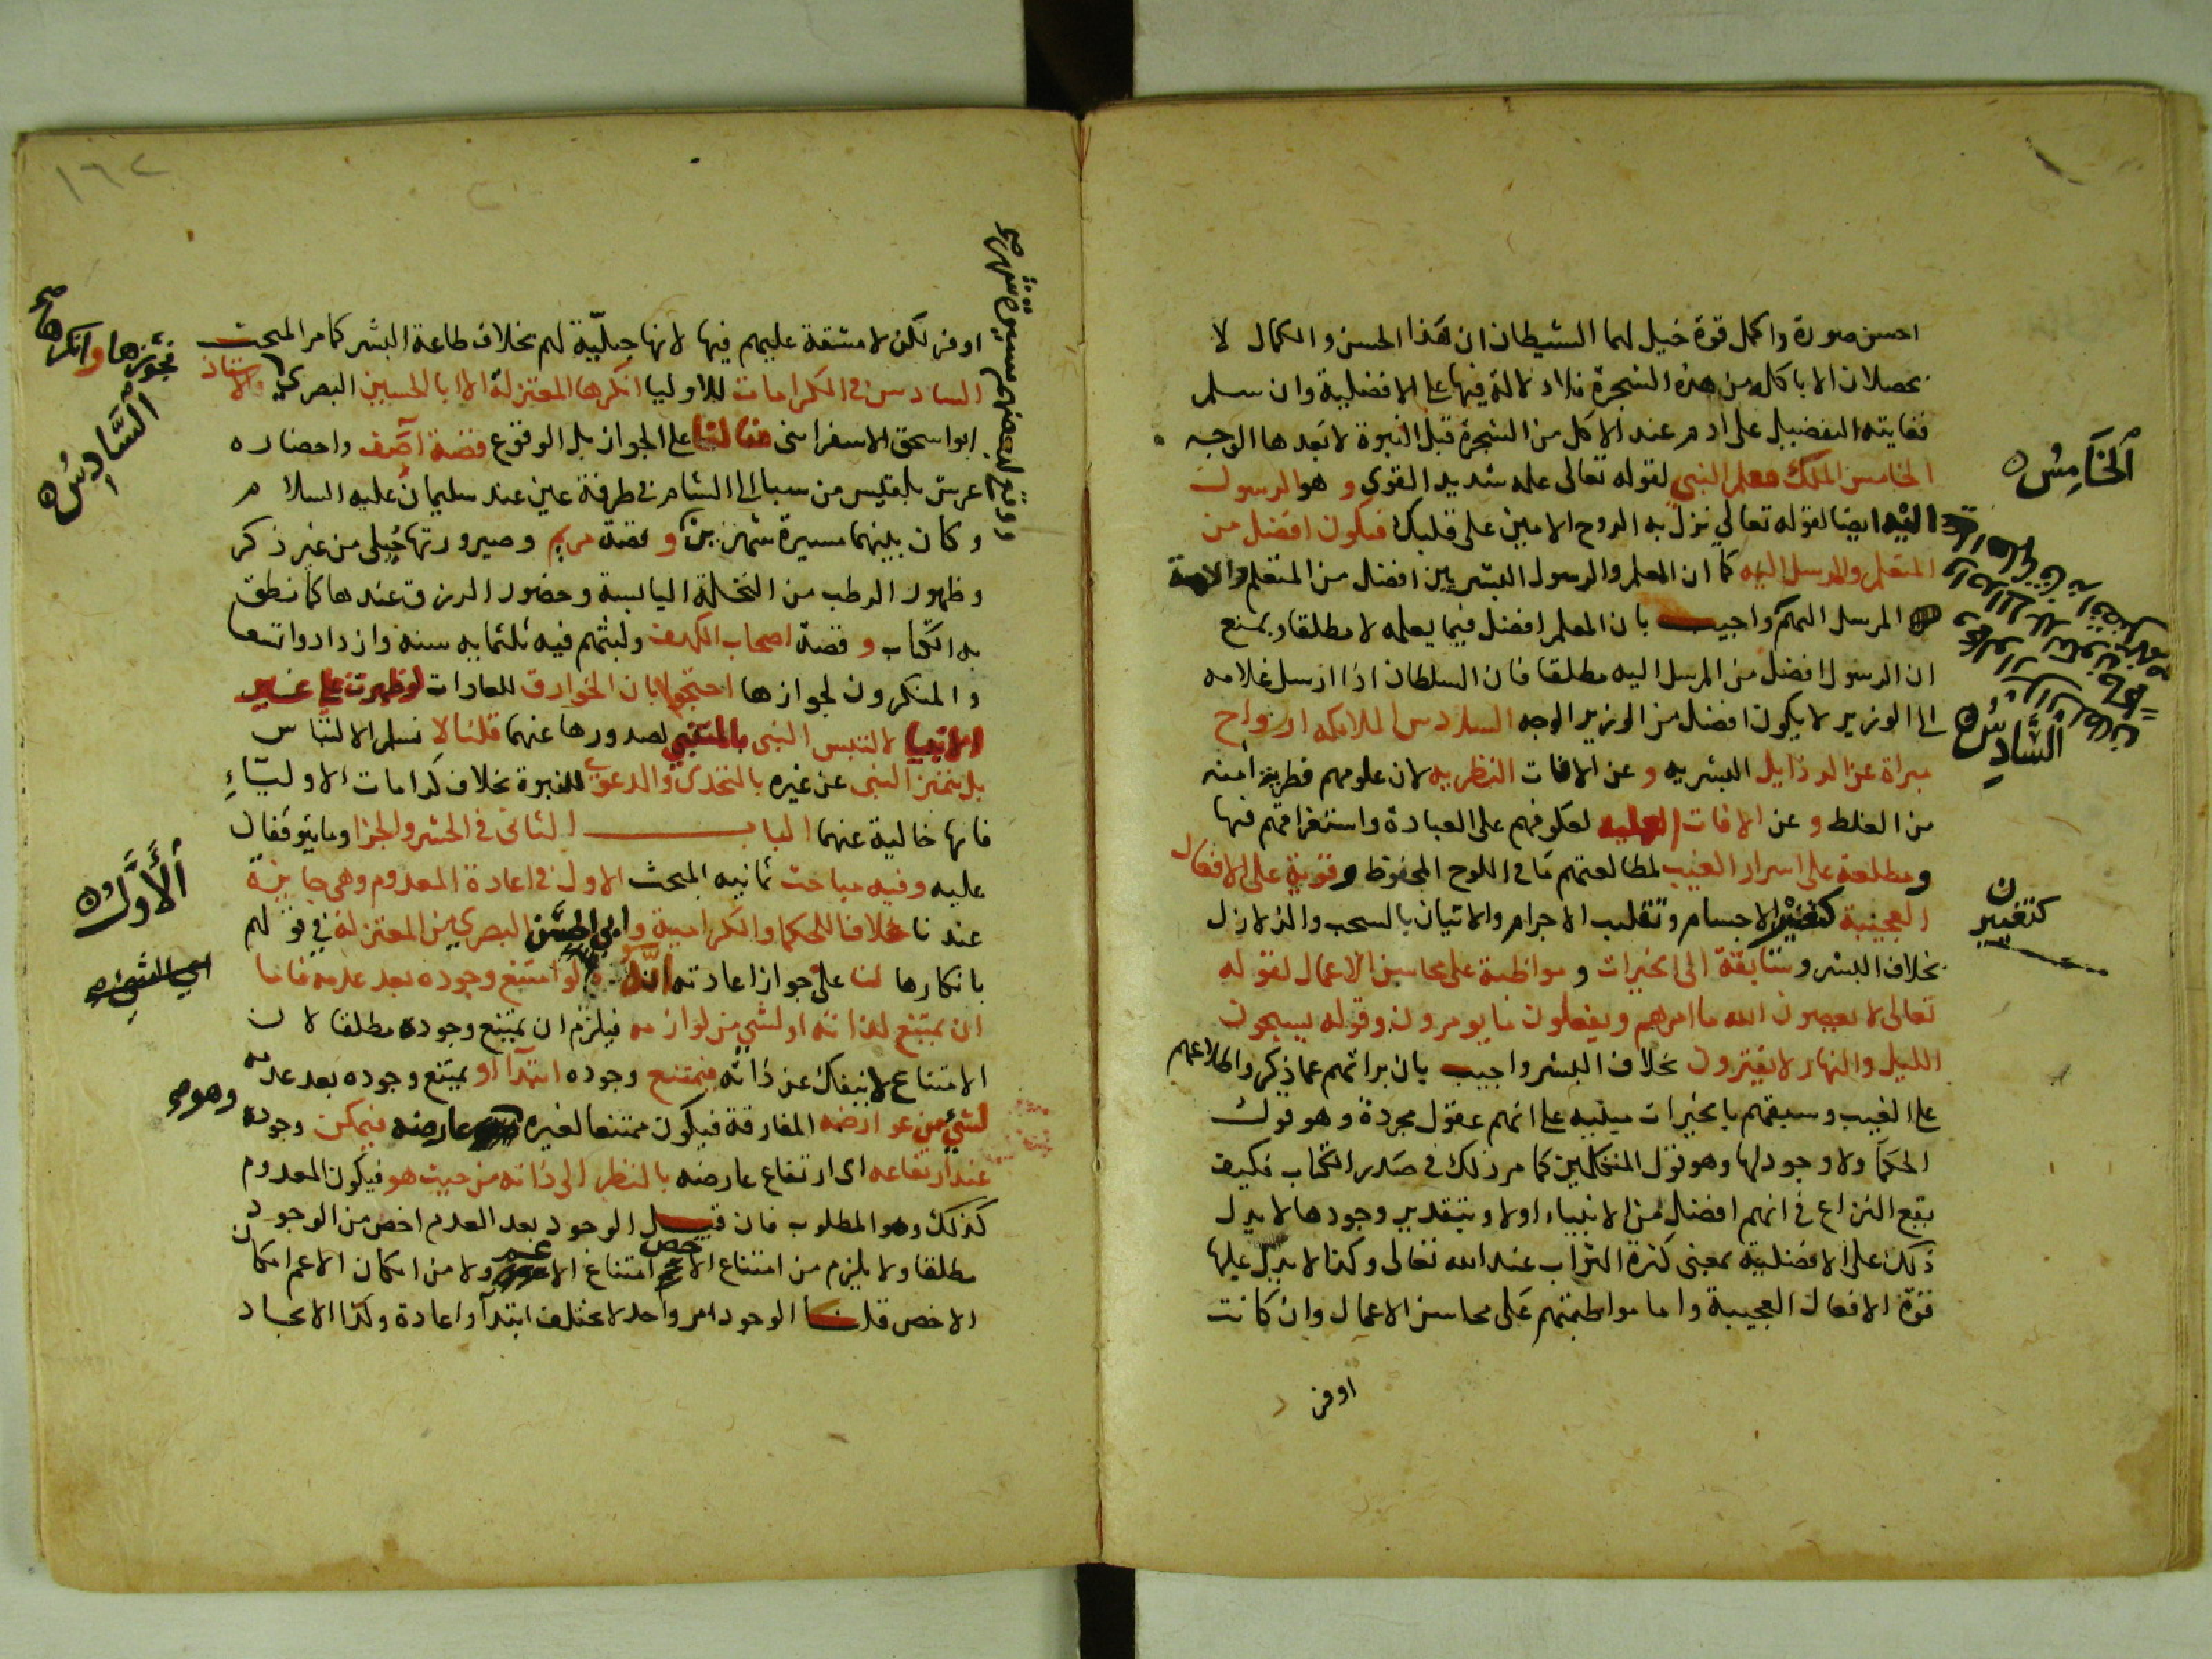 احسن صورة واكمل قوة خيل لهما الشيطان ان هذا الحسن والكمال لا
يحصلان الا باكله من هذه الشجرة فلا دلالة فيها على الافضلية وان سلم
فغايته التفضيل على ادم عند الاكل من الشجرة قبل النبوة لا بعدها الوجه
الخامس الملك معلم النبي لقوله تعالى علمه شديد القوى و هو الرسول
اليه ايضا لقوله تعالى نزل به الروح الامين على قلبك فيكون افضل من
المتعلم والمرسل اليه كما ان المعلم والرسول البشريين افضل من المتعلم والامة
المرسل اليهم واجيب بان المعلم افضل فيما يعلمه لا مطلقا ويمنع
ان الرسول افضل من المرسل اليه مطلقا فان السلطان اذا ارسل غلامه
الى الوزير لا يكون افضل من الوزير الوجه السادس الملائكه ارواح
مبراة عن الرذايل البشريه و عن الافات النظريه لان علومهم فطرية امنه
من الغلط و عن الافات العمليه لعكوفهم على العبادة واستغراقهم فيها
ومطلعة على اسرار الغيب لمطالعتهم ما في اللوح المحفوظ وقوية على الافعال
العجيبة كتغيير الاجسام وتقليب الاجرام والاتيان بالسحب والزلازل
بخلاف البشر وسابقة الى الخيرات و مواظبة على محاسن الاعمال لقوله
تعالى لا يعصون الله ما امرهم ويفعلون ما يومرون وقوله يسبحون
الليل والنهار لا يفترون بخلاف البشر واجيب بان براتهم عما ذكر واطلاعهم
على الغيب وسبقهم بالخيرات مبنيه على انهم عقول مجردة وهو قول
الحكما ولا وجود لها وهو قول المتكلمين كما مر ذلك في صدر الكتاب فكيف
يقع النزاع في انهم افضل من الانبياء اولا وبتقدير وجودها لا يدل
ذلك على الافضلية بمعنى كثرة الثواب عند الله تعالى وكذا لا يدل عليها
قوة الافعال العجيبة واما مواظبتهم على محاسن الاعمال وان كانت
اوفر
الخامس
السادس
كتغيير
١٦٢
اوفر لكن لا مشقة عليهم فيها لانها جبلّية لهم بخلاف طاعة البشر كما مر المبحث
السادس في الكرامات للاوليا انكرها المعتزلة الا ابا الحسين البصري والاستاذ
ابو اسحق الاسفراسني لنا على الجواز بل الوقوع قصة آصف واحضاره
عرش بلقيس من سبا الى الشام في طرفة عين عند سليمان عليه السلام
و كان بينهما مسيرة شهرين و قصة مريم و صيرورتها حبلى من غير ذكر
وظهور الرطب من النخلة اليابسة وحضور الرزق عندها كما نطق
به الكتاب و قصة اصحاب الكهف ولبثهم فيه ثلثمايه سنه وازدادوا تسعا
والمنكرون لجوازها احتجوا بان الخوارق للعادات لو ظهرت على غير
الانبيا لالتبس النبي بالمتنبي لصدورها عنهما قلنا لا نسلم الالتباس
بل يتميز النبي عن غيره بالتحدى والدعوى للنبوة بخلاف كرامات الاولياء
فانها خالية عنهما الباب الثاني في الحشر والجزا وما يتوقفان
عليه وفيه مباحث ثمانيه المبحث الاول في اعادة المعدوم وهي جايزة
عندنا خلافا للحكما والكرامية وابي الحسين البصري من المعتزلة في قولهم
بانكارها لنا على جواز اعادته انه لو امتنع وجوده بعد عدمه فاما
ان يمتنع لذاته او لشي من لوازمه فيلزم ان يمتنع وجوده مطلقا لان
الامتناع لا ينفك عن ذاته فيمتنع وجوده ابتدآ او يمتنع وجوده بعد عدمه
لشي من عوارضه المفارقة فيكون ممتنعا لغيره عارضه فيمكن وجوده
عند ارتفاعه اى ارتفاع عارضه بالنظر الى ذاته من حيث هو فيكون المعدوم
كذلك وهو المطلوب فان قيل الوجود بعد العدم اخص من الوجود
مطلقا ولا يلزم من امتناع الاخص امتناع الاعم ولا من امكان الاعم امكان
الاخص قلنا الوجود امر واحد لا يختلف ابتدآ واعادة وكذا الايجاد
فجوزها وانكرها صح
السادس
الاول
وهو صح